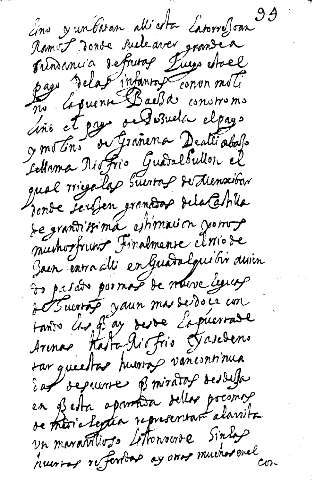 99
çino y un batan alli esta la torre Joan
Ramos donde suele aver grande a
bundancia de frutas Luego esta el
pago de las infantas con un moli
no la puente Baeça con otro mo
lino el pago de el pago
y molino de Grañena De alli abaxo
se llama Rio frio Guadalbullon el
qual rriega las huertas de
donde se cogen granadas de la Castilla
de grandissima estimacion y otros
muchos frutos Finalmente el rrio de
Jaen entra alli en Guadalquibir avien
do pasado por mas de nueve leguas
de huertas y aun mas de doce con
tando las q ay desde la puerta de
Arenas hasta Rio frio y ase de no
tar que estas huertas van continua
das de suerte q miradas desde Ja
en q esta apartada dellas poco mas
de media legua representan a la vista
un maravilloso bosque verde Sin las
huertas rreferidas ay otras muchas en el
con